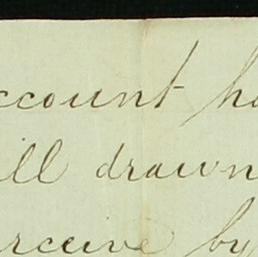 ccount ha
ill drawn
erceive by